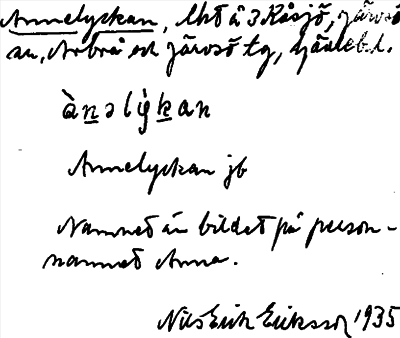 Annelyckan, lht å 3 Råsjö, Järvsö
sn, Arbrå och Järvsö tg, Gävleb. l.
ànəlỳkan
Annelyckan jb
Namnet är bildat på person-
namnet Anna.
Nils Erik Eriksson 1935